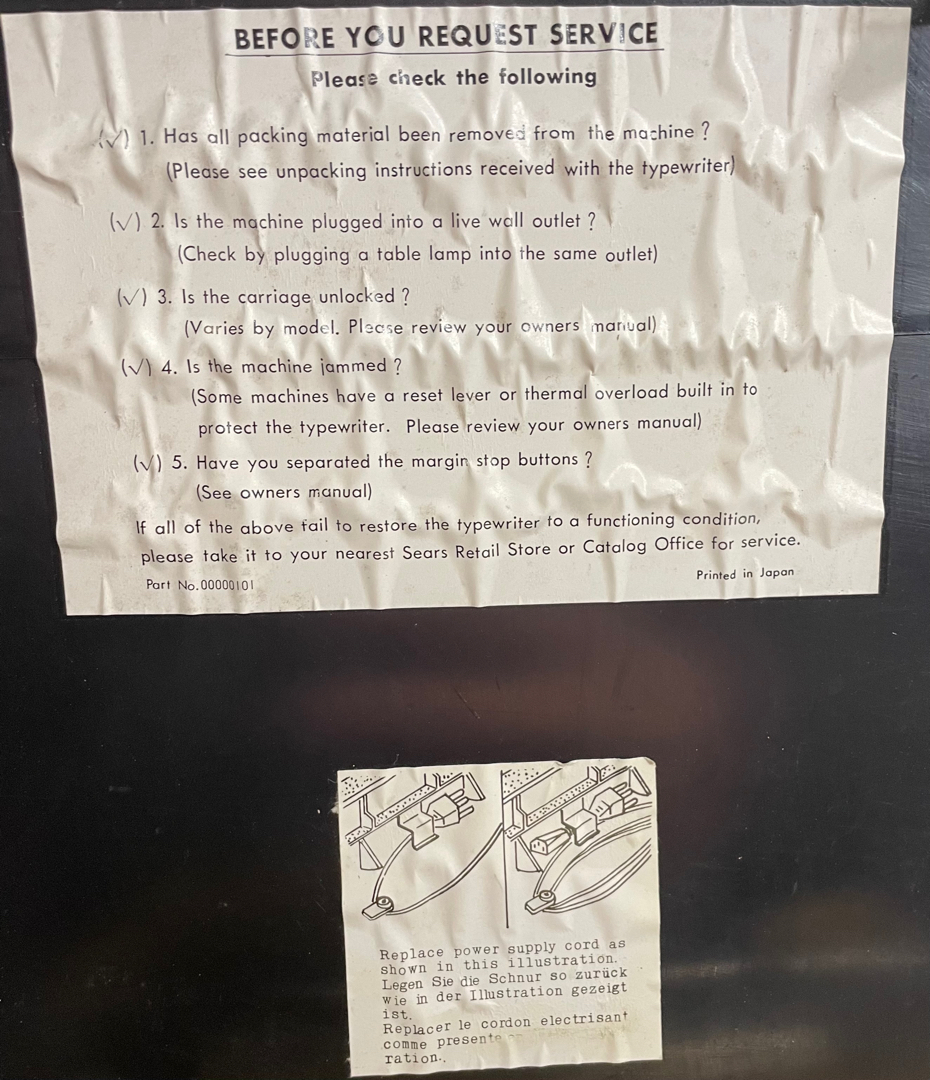 BEFORE YOU REQUEST SERVICE
Please check the following
(√) 1. Has all packing material been removed from the machine ?
(Please see unpacking instructions received with the typewriter)
(√) 2. Is the machine plugged into a live wall outlet ?
(Check by plugging a table lamp into the same outlet)
(√) 3. Is the carriage unlocked ?
(Varies by model. Please review your owners manual)
(√) 4. Is the machine jammed ?
(Some machines have a reset lever or thermal overload built in to
protect the typewriter. Please review your owners manual)
(√) 5. Have you separated the margin stop buttons ?
(See owners manual)
If all of the above fail to restore the typewriter to a functioning condition,
please take it to your nearest Sears Retail Store or Catalog Office for service.
Part No.00000101
Printed in Japan
Replace power supply cord as
shown in this illustration.
Legen Sie die Schnur so zurück
wie in der Illustration gezeigt
ist.
Replacer le cordon electrisant
comme presente
ration.